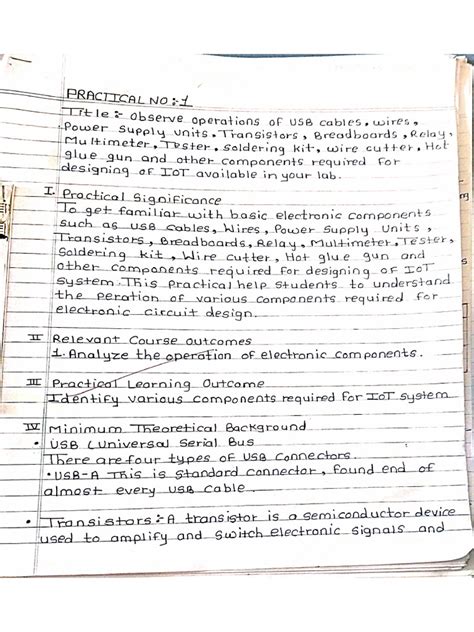 PRACTICAL NO :-1
Title :- Observe operations of USB cables, wires,
Power supply units, Transistors, Breadboards, Relay,
Multimeter, Tester, soldering kit, wire cutter, Hot
glue gun and other components required for
designing of IoT available in your lab.
I. Practical Significance
To get familiar with basic electronic components
such as USB cables, Wires, Power Supply Units,
Transistors, Breadboards, Relay, Multimeter, Tester,
Soldering kit, Wire cutter, Hot glue gun and
other components required for designing of IoT
system. This practical help students to understand
the peration of various components required for
electronic circuit design.
II Relevant Course outcomes
1. Analyze the operation of electronic components.
III Practical Learning Outcome
Identify various components required for IoT system
IV Minimum Theoretical Background
• USB (Universal Serial Bus
There are four types of USB Connectors.
• USB-A This is standard connector, found end of
almost every USB cable.
• Transistors :- A transistor is a semiconductor device
used to amplify and switch electronic signals and